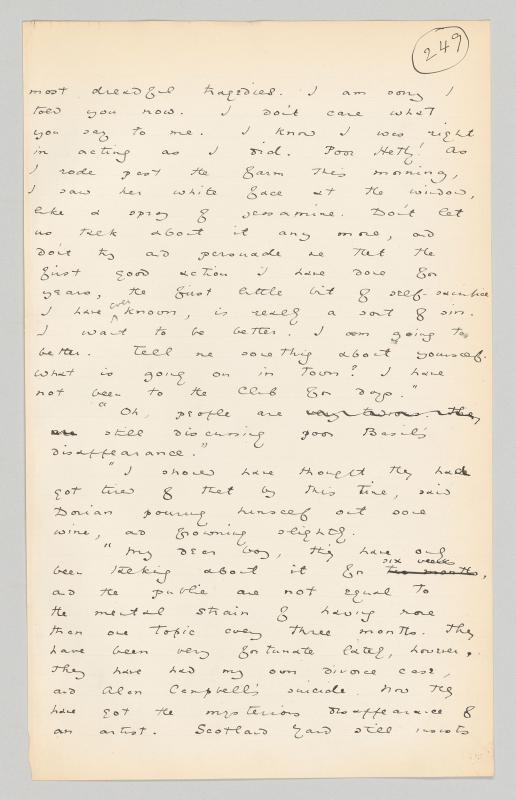 249
most dreadful tragedies. I am sorry I
told you now. I don't care what
you say to me. I know I was right
in acting as I did. Poor Hetty! As
I rode past the farm this morning,
I saw her white face at the window,
like a spray of jessamine. Don't let
us talk about it any more, and
don't try and persuade me that the
first good action I have done for
years, the first little bit of self-sacrifice
I have ever known, is really a sort of sin.
I want to be better. I am going to be
better. Tell me something about yourself.
What is going on in town? I have
not been to the Club for days."
"Oh, people are
are still discussing poor Basil's
disappearance."
"I should have thought they had
got tired of that by this time, said
Dorian pouring himself out some
wine, and frowning slightly.
"My dear boy, they have only
been talking about it for six weeks two months,
and the public are not equal to
the mental strain of having more
than one topic every three months. They
have been very fortunate lately, however.
They have had my own divorce case,
and Alan Campbell's suicide. Now they
have got the mysterious disappearance of
an artist. Scotland Yard still insists